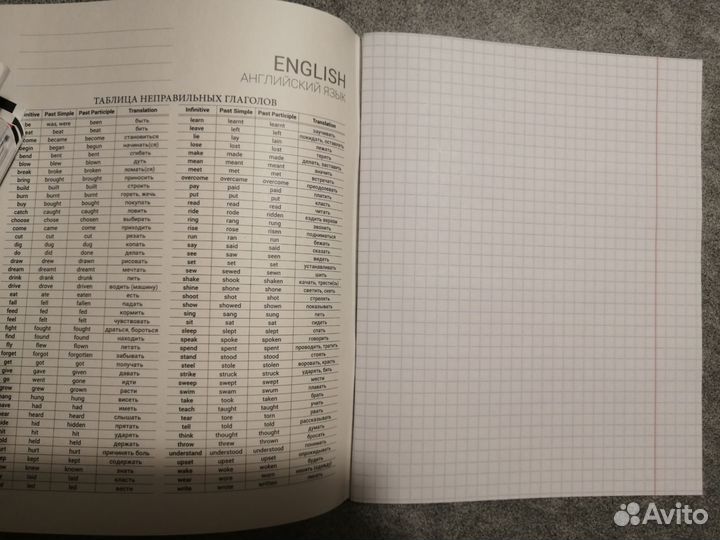 ENGLISH
АНГЛИЙСКИЙ ЯЗЫК
ТАБЛИЦА НЕПРАВИЛЬНЫХ ГЛАГОЛОВ
Infinitive Past Simple Past Participle Translation
be was, were been быть
beat beat бить
became become становиться
begin began begun начинать(ся)
bend bent bent сгибать
blow blew blown дуть
break broke broken ломать(ся)
bring brought brought приносить
build built built строить
burn burnt burnt гореть, жечь
buy bought bought покупать
catch caught caught ловить
choose chose chosen выбирать
come came come приходить
cut cut cut резать
dig dug dug копать
do did done делать
draw drew drawn рисовать
dream dreamt dreamt мечтать
drink drank drunk пить
drive drove driven водить (машину)
eat ate eaten есть
fall fell fallen падать
feed fed fed кормить
feel felt felt чувствовать
fight fought fought драться, бороться
find found found находить
fly flew flown летать
forget forgot forgotten забывать
get got got получать
give gave given давать
go went gone идти
grow grew grown расти
hang hung hung висеть
have had had иметь
hear heard heard слышать
hide hid hidden прятать
hit hit hit ударять
hold held held держать
hurt hurt hurt причинять боль
kept kept содержать
know knew known знать
laid laid класть
led led вести
Infinitive Past Simple Past Participle Translation
learn learnt learnt заучивать
leave left left покидать, оставлять
lie lay lain лежать
lose lost lost терять
make made made делать, заставлять
mean meant meant значить
meet met met встречать
overcome overcame overcome преодолевать
pay paid paid платить
put put put класть
read read read читать
ride rode ridden ездить верхом
ring rang rung звонить
rise rose risen подниматься
run ran run бежать
say said said сказать
see saw seen видеть
set set set устанавливать
sew sewed sewn шить
shake shook shaken качать, трясти(сь)
shine shone shone светить, сиять
shoot shot shot стрелять
show showed shown показывать
sing sang sung петь
sit sat sat сидеть
sleep slept slept спать
speak spoke spoken говорить
spend spent spent проводить, тратить
stand stood stood стоять
steel stole stolen воровать, красть
strike struck struck ударять, бить
sweep swept swept мести
swim swam swum плавать
take took taken брать
teach taught taught учить
tear tore torn рвать
tell told told рассказывать
think thought thought думать
throw threw thrown бросать
understand understood understood понимать
upset upset upset опрокидывать
wake woke woken будить
wear wore worn носить (одежду)
write wrote written писать
Avito